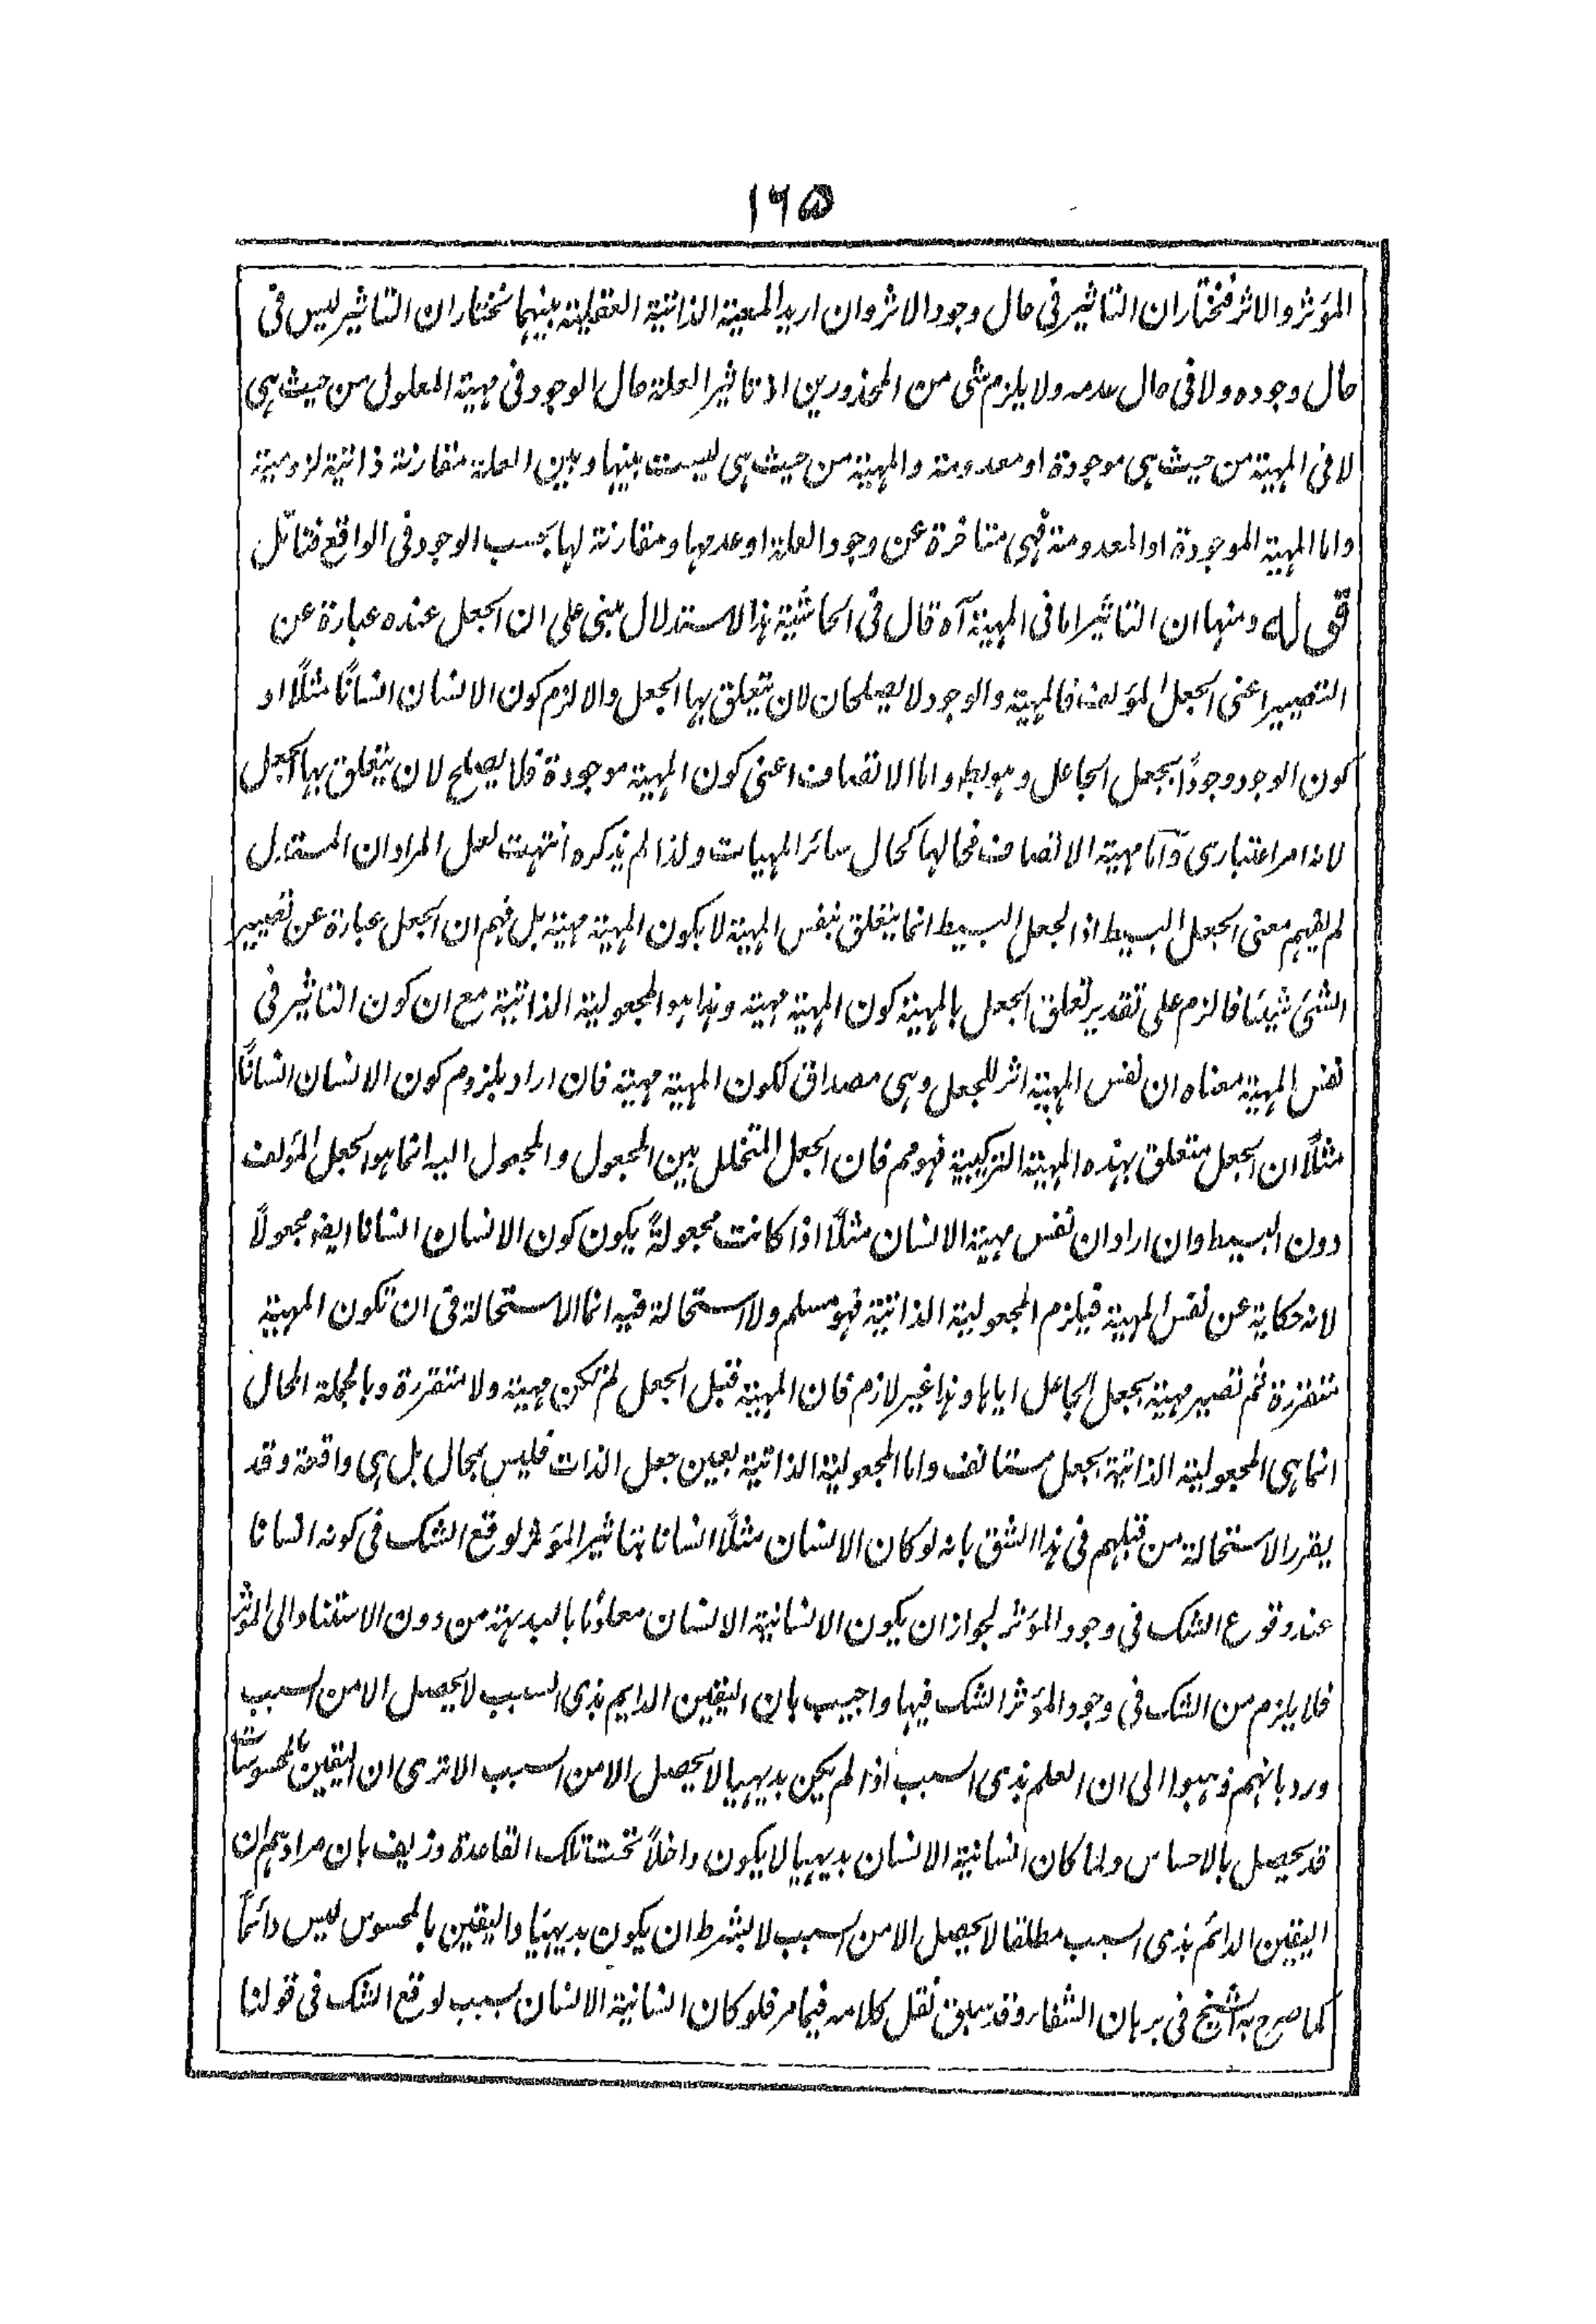 ١٦٥
المؤثر والاثر فنختار ان التاثير فى حال وجود الاثر وان اريد المعية الذاتية العقلية بينهما نختار ان التاثير ليس فى
حال وجوده ولا فى حال عدمه ولا يلزم شى من المحذورين اذ تاثير العلة حال الوجود فى مهية المعلول من حيث هى
لا فى المهية من حيث هى موجودة او معدومة والمهية من حيث هى ليست بينها وبين العلة مقارنة ذاتية لزومية
واما المهية الموجودة او المعدومة فهى متاخرة عن وجود العلة او عدمها ومقارنة لها بحسب الوجود فى الواقع فتامل
قوله ومنها ان التاثير اما فى المهية آه قال فى الحاشية هذا الاستدلال مبنى على ان الجعل عنده عبارة عن
التصيير اعنى الجعل المؤلف فالمهية والوجود لا يصلحان لان يتعلق بها الجعل والا لزم كون الانسان انسانًا مثلًا او
كون الوجود وجودًا بجعل الجاعل وهو بط واما الاتصاف اعنى كون المهية موجودة فلا يصلح لان يتعلق بها الجعل
لانه امر اعتبارى وّاما مهية الاتصاف فحالها كحال سائر المهيات ولذا لم يذكره انتهت لعل المراد ان المستدل
لم يفهم معنى الجعل البسيط اذ الجعل البسيط انما يتعلق بنفس المهية لا بكون المهية مهية بل فهم ان الجعل عبارة عن تصيير
الشئ شيئا فالزم على تقدير تعلق الجعل بالمهية كون المهية مهية وهذا هو المجعولية الذاتية مع ان كون التاثير فى
نفس المهية معناه ان نفس المهية اثر للجعل وهى مصداق لكون المهية مهية فان اراد بلزوم كون الانسان انسانًا
مثلًا ان الجعل متعلق بهذه المهية التركيبية فهو مم فان الجعل المتخلل بين المجعول والمجعول اليه انما هو الجعل المؤلف
دون البسيط وان اراد ان نفس مهية الانسان مثلًا اذا كانت مجعولةً يكون كون الانسان انسانا ايضا مجعولاً
لانه حكاية عن نفس المهية فيلزم المجعولية الذاتية فهو مسلم ولا استحالة فيه انما الاستحالة فى ان تكون المهية
متقررة ثم تصير مهية بجعل الجاعل اياها وهذا غير لازم فان المهية قبل الجعل لم تكن مهية ولا متقررة وبالجملة المحال
انما هى المجعولية الذاتية بجعل مستانف واما المجعولية الذاتية بعين جعل الذات فليس بمحال بل هى واقعة وقد
يقرر الاستحالة من قبلهم فى هذا الشق بانه لو كان الانسان مثلًا انسانا بتاثير المؤثر لوقع الشك فى كونه انسانا
عند وقوع الشك فى وجود المؤثر لجواز ان يكون الانسانية الانسان معلومًا بالبديهة من دون الاستناد الى المؤثر
فلا يلزم من الشك فى وجود المؤثر الشك فيها واجيب بان اليقين الدايم بذى السبب لا يحصل الا من السبب
ورد بانهم ذهبوا الى ان العلم بذى السبب اذا لم يكن بديهيا لا يحصل الا من السبب الا ترى ان اليقين بالمحسوسات
قد يحصل بالاحساس ولما كان انسانية الانسان بديهيا لا يكون داخلاً تحت تلك القاعدة وزيف بان مرادهم ان
اليقين الدائم بذى السبب مطلقا لا يحصل الا من السبب لا بشرط ان يكون بديهيًا واليقين بالمحسوس ليس دائمًا
كما صرح به الشيخ فى برهان الشفاء وقد سبق نقل كلامه فيما مر فلو كان انسانية الانسان بسبب لوقع الشك فى قولنا